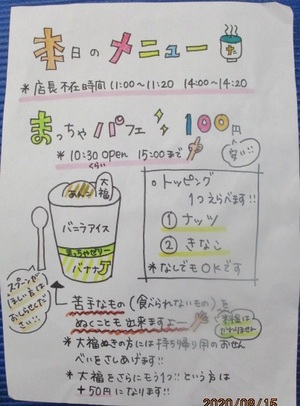 本日のメニュー
*店長不在時間 11:00〜11:20 14:00〜14:20
まっちゃパフェ 100円
安い!!
*10:30 open 15:00まで
くらい
あんこ
大福
バニラアイス
まっちゃゼリー
バナナ
スプーンが
ほしい方は
お知らせくだ
さい!!
○トッピング
1つえらべます!!
① ナッツ
② きなこ
*なしでもOKです
苦手なもの(食べられないもの)を
ぬくことも出来ますよー
料金は
かわりません
*大福ぬきの方には持ち帰り用のおせん
べいをさしあげます!!
*大福をさらにもう1つ!!という方は
+50円になります!!
2020/08/15